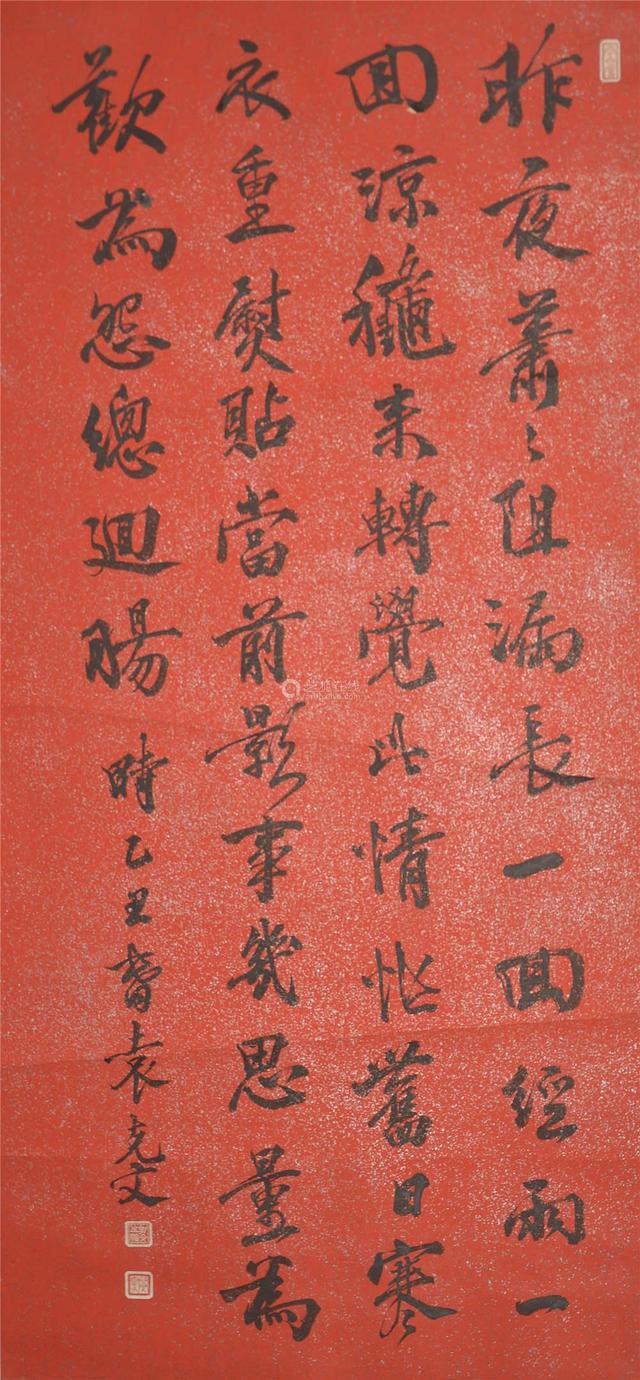 昨夜蕭〻阻漏長一回經雨一
回涼龝来轉覺此情怯舊日寒
衣重熨貼當前影事幾思量為
歡為怨總迴腸 時乙丑春袁克文